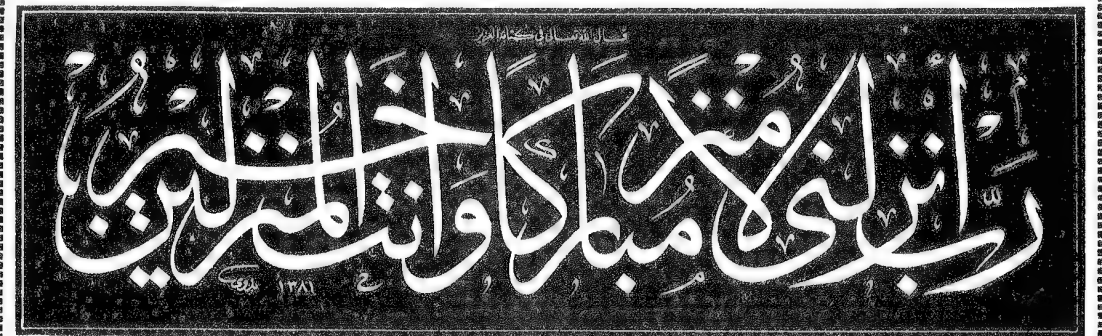 قال الله تعالى في كتابه العزيز
رب أنزلني منزلا مباركا وأنت خير المنزلين
١٣٨١